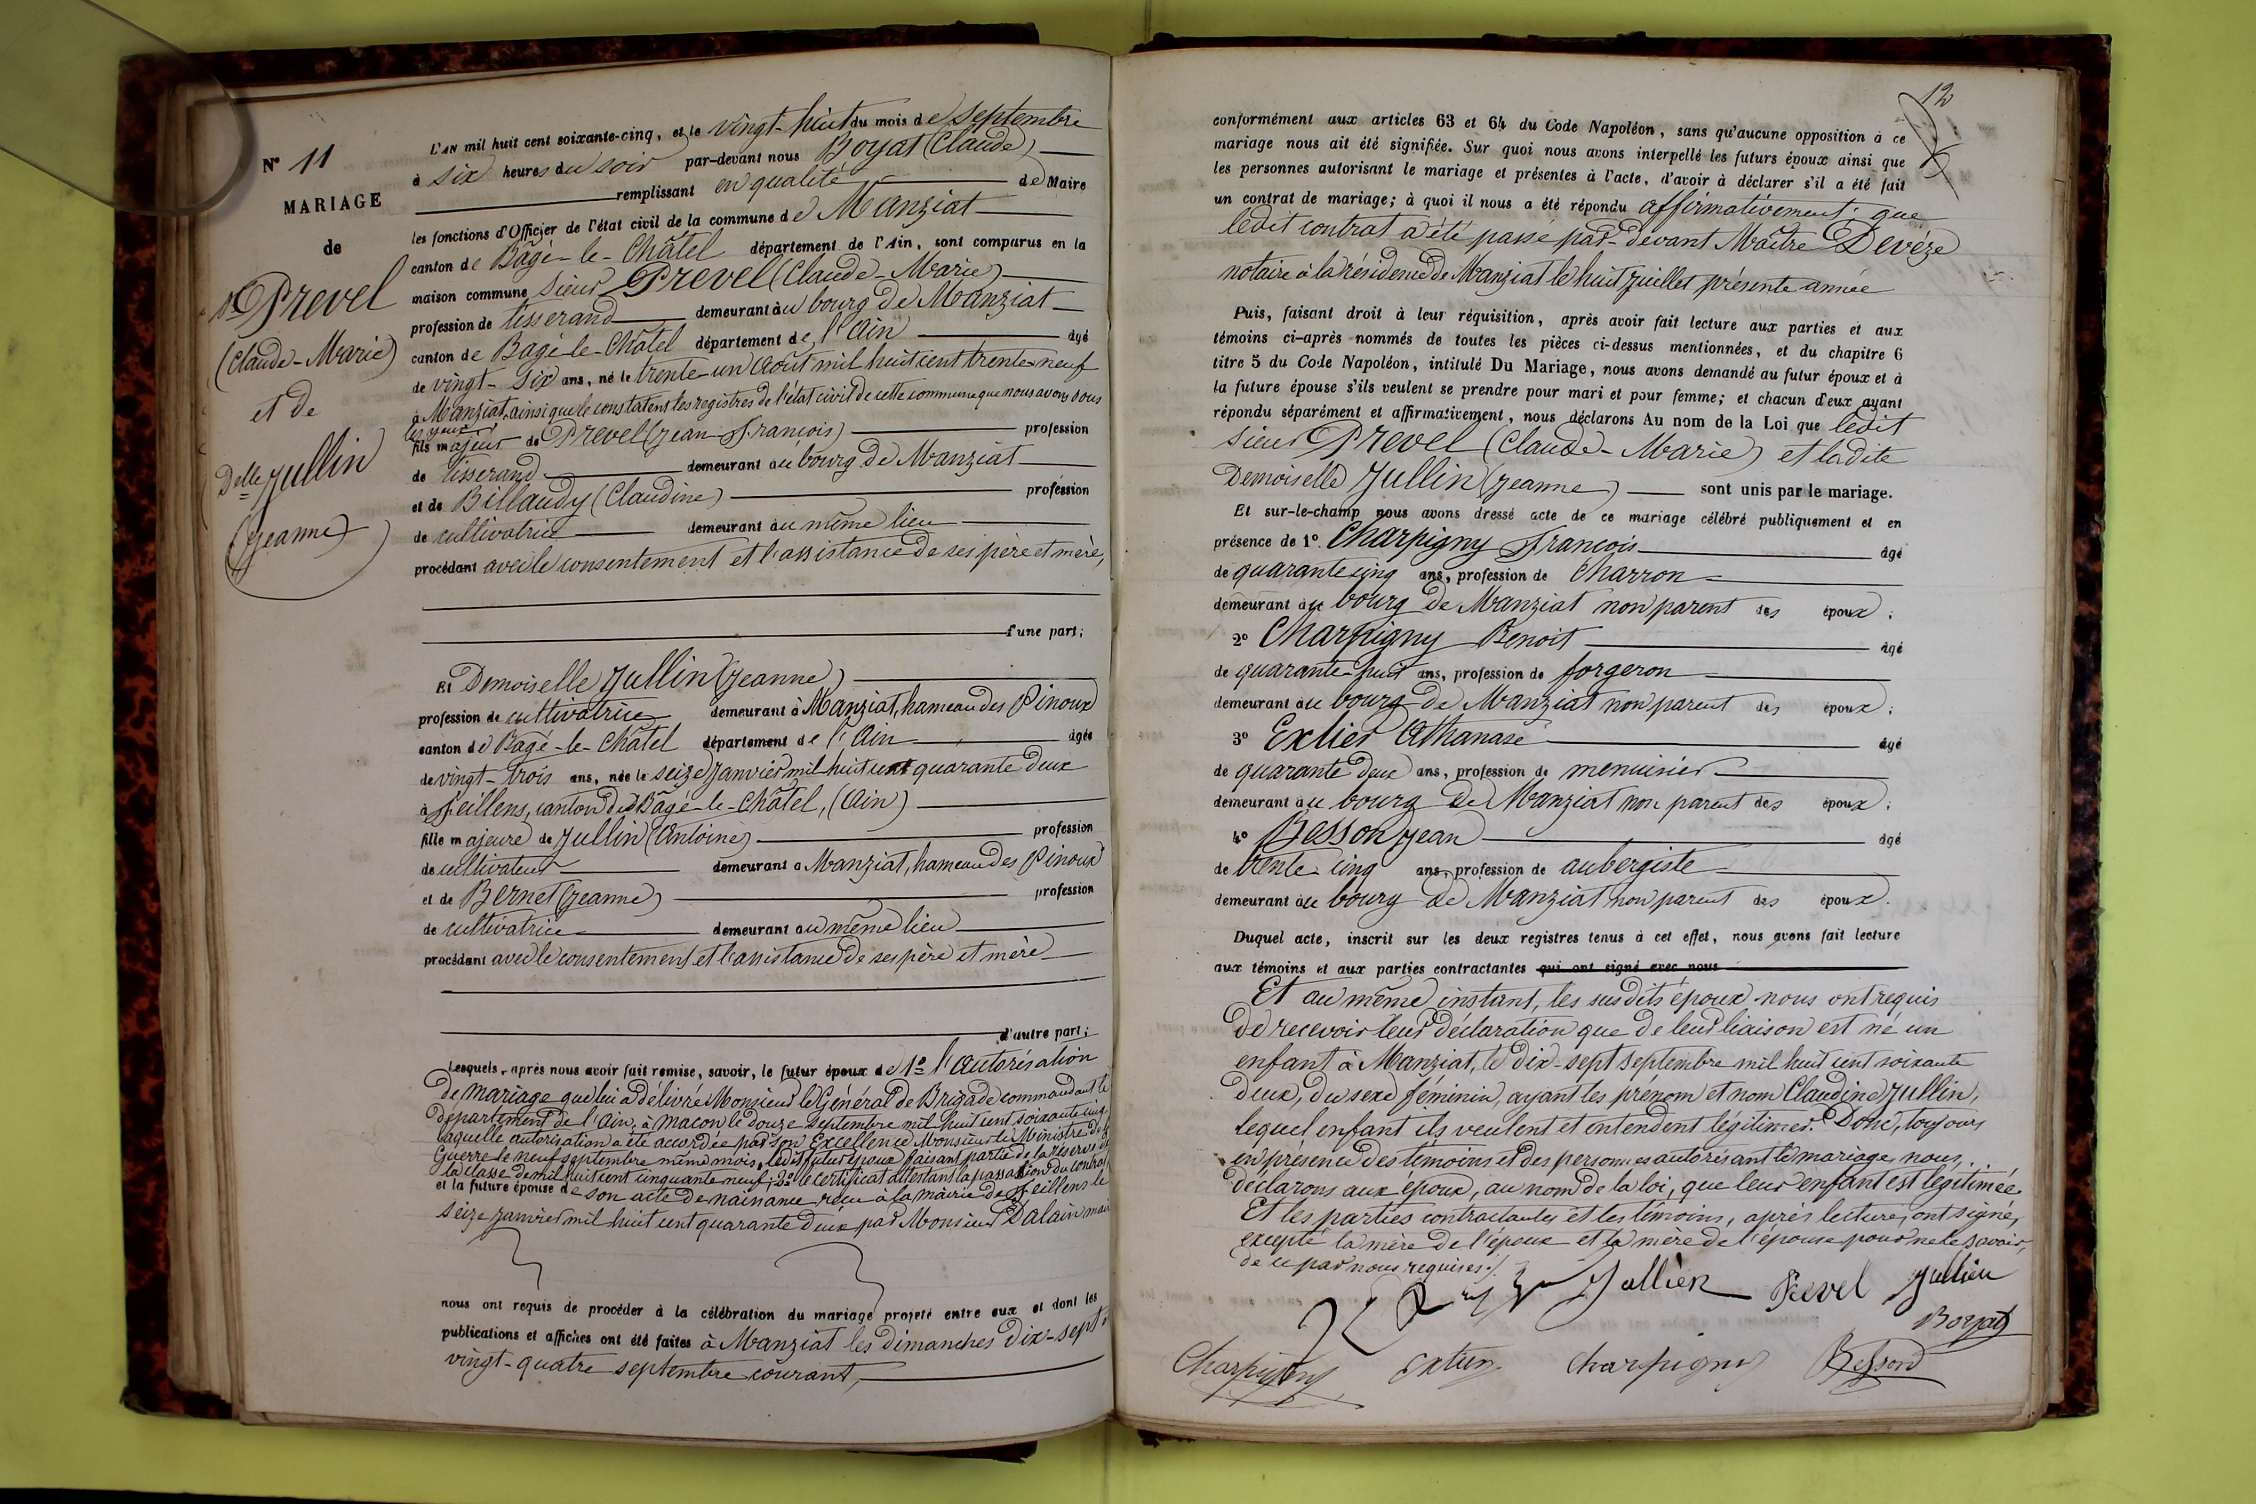 N° 11
MARIAGE
de
Sr Prevel
(Claude-Marie)
et de
Delle Jullin
(Jeanne)
L'AN mil huit cent soixante-cinq, et le vingt-huit du mois de septembre
à six heures du soir par-devant nous Boyat (Claude)
remplissant en qualité de Maire
les fonctions d'Officier de l'état civil de la commune de Manziat
canton de Bâgé-le-Châtel département de l'Ain, sont comparus en la
maison commune sieur Prevel (Claude-Marie)
profession de tisserand demeurant au bourg de Manziat
canton de Bagé-le-Châtel département de l'Ain âgé
de vingt-six ans, né le trente-un Août mil huit cent trente-neuf
à Manziat, ainsi que le constatent les registres de l'état civil de cette commune que nous avons sous
les yeux
fils majeur de Prevel (Jean-François) profession
de tisserand demeurant au bourg de Manziat
et de Billaudy (Claudine) profession
de cultivatrice demeurant au même lieu
procédant avec le consentement et l'assistance de ses père et mère,
d'une part;
Et Demoiselle Jullin (Jeanne)
profession de cultivatrice demeurant à Manziat, hameau des Pinoux
canton de Bagé-le-Châtel département de l'Ain âgée
de vingt-trois ans, née le seize Janvier mil huit cent quarante deux
à Feillens, canton de Bâgé-le-Châtel, (Ain)
fille majeure de Jullin (Antoine) profession
de cultivateur demeurant à Manziat, hameau des Pinoux
et de Bernet (Jeanne) profession
de cultivatrice demeurant au même lieu
procédant avec le consentement et l'assistance de ses père et mère
d'autre part;
Lesquels, après nous avoir fait remise, savoir, le futur époux de 1° l'autorisation
de mariage que lui a délivré Monsieur le Général de Brigade commandant le
département de l'Ain, à Macon le douze septembre mil huit cent soixante cinq
laquelle autorisation a été accordée par son Excellence Monsieur le Ministre de la
Guerre le neuf septembre même mois, ledit futur époux faisant partie de la réserve de
la classe de mil huit cent cinquante neuf; 2° le certificat attestant la passation du contrat
et la future épouse de son acte de naissance reçu à la mairie de Feillens le
seize janvier mil huit cent quarante deux par Monsieur Dalain maire
nous ont requis de procéder à la célébration du mariage projeté entre eux et dont les
publications et affiches ont été faites à Manziat les dimanches dix-sept et
vingt-quatre septembre courant,
12
conformément aux articles 63 et 64 du Code Napoléon, sans qu'aucune opposition à ce
mariage nous ait été signifiée. Sur quoi nous avons interpellé les futurs époux ainsi que
les personnes autorisant le mariage et présentes à l'acte, d'avoir à déclarer s'il a été fait
un contrat de mariage; à quoi il nous a été répondu affirmativement que
ledit contrat a été passé par-devant Maître Devèze
notaire à la résidence de Manziat le huit Juillet présente année
Puis, faisant droit à leur réquisition, après avoir fait lecture aux parties et aux
témoins ci-après nommés de toutes les pièces ci-dessus mentionnées, et du chapitre 6
titre 5 du Code Napoléon, intitulé Du Mariage, nous avons demandé au futur époux et à
la future épouse s'ils veulent se prendre pour mari et pour femme; et chacun d'eux ayant
répondu séparément et affirmativement, nous déclarons Au nom de la Loi que ledit
sieur Prevel (Claude-Marie) et ladite
Demoiselle Jullin (Jeanne) sont unis par le mariage.
Et sur-le-champ nous avons dressé acte de ce mariage célébré publiquement et en
présence de 1° Charpigny François âgé
de quarante cinq ans, profession de Charron
demeurant au bourg de Manziat non parent des époux;
2° Charpigny Benoit âgé
de quarante-huit ans, profession de forgeron
demeurant au bourg de Manziat non parent des époux;
3° Extier Athanase âgé
de quarante deux ans, profession de menuisier
demeurant au bourg de Manziat non parent des époux;
4° Besson Jean âgé
de trente-cinq ans, profession de aubergiste
demeurant au bourg de Manziat non parent des époux.
Duquel acte, inscrit sur les deux registres tenus à cet effet, nous avons fait lecture
aux témoins et aux parties contractantes qui ont signé avec nous
Et au même instant, les susdits époux nous ont requis
de recevoir leur déclaration que de leur liaison est né un
enfant à Manziat, le dix-sept septembre mil huit cent soixante
deux, du sexe féminin, ayant les prénom et nom Claudine Jullin,
lequel enfant ils veulent et entendent légitimer. Donc, toujours
en présence des témoins et des personnes autorisant le mariage, nous
déclarons aux époux, au nom de la loi, que leur enfant est légitimée.
Et les parties contractantes et les témoins, après lecture, ont signé,
excepté la mère de l'époux et la mère de l'épouse pour ne le savoir,
de ce par nous requises./.
Jullien Prevel Jullien
Boyat
Charpigny Extier Charpigny Besson